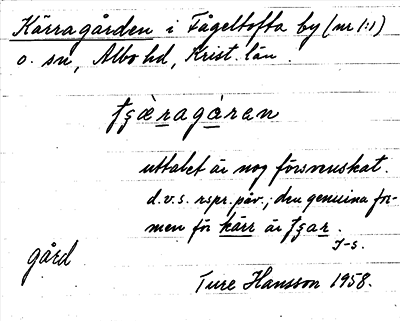 Kärragården i Fågeltofta by (nr 1:1)
o. sn, Albo hd, Krist. län.
ʃʒæ̀ragàran
uttalet är nog försvenskat.
d.v.s. rspr. påv.; den genuina for-
men för kärr är ʃʒar.
J-s.
gård
Ture Hansson 1958.